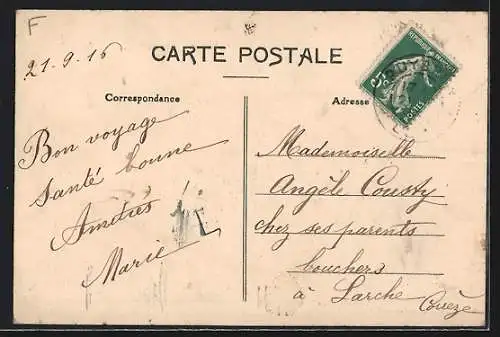 F
21.9.16
CARTE POSTALE
Correspondance
Adresse
Bon voyage
Santé bonne
Amitiés
Marie
Mademoiselle
Angèle Cousty
chez ses parents
bouchers
à Larche Corrèze
REPUBLIQUE FRANÇAISE
5c
POSTES